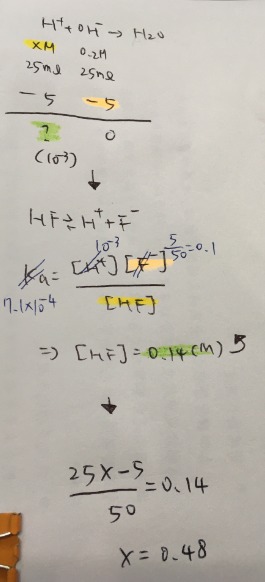 H⁺+OH⁻→ H₂O
XM 0.2M
25ml 25ml
-5 -5
? 0
(10⁻³)
↓
HF⇄H⁺+F⁻
10⁻³ 5/50=0.1
Ka= [H⁺][F⁻] / [HF]
7.1×10⁻⁴
⇒ [HF]=0.14(M)
↓
25X-5 / 50 =0.14
X=0.48